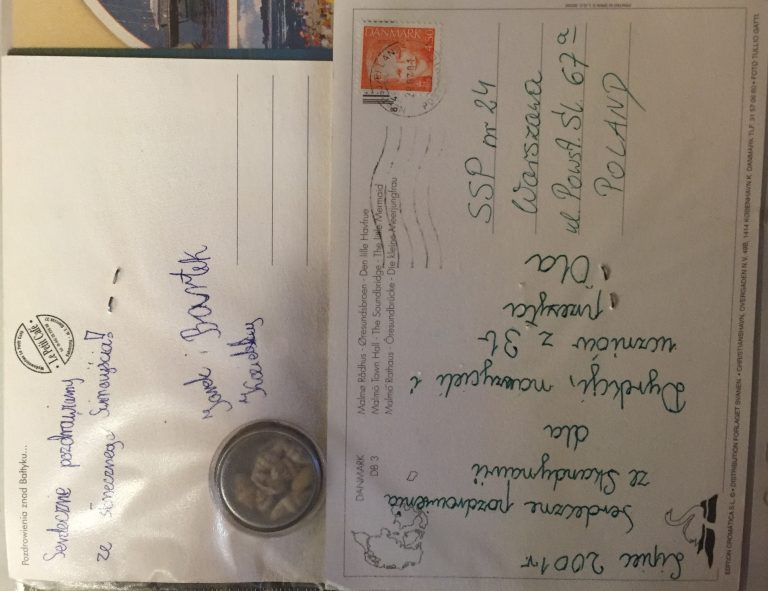 Pozdrowienia znad Bałtyku...
Serdeczne pozdrowienia
ze słonecznego Świnoujścia!
Jarek i Bartek
Le Petit Café
Lipiec 2001r
Serdeczne pozdrowienia
ze Skandynawii
dla
Dyrekcji, nauczycieli i
uczniów z 3b
przesyła
Ola
DANMARK
DB 3
Malmø Rådhus · Øresundsbroen · Den lille Havfrue
Malmö Town Hall · The Soundbridge · The Little Mermaid
Malmö Rathaus · Öresundbrücke · Die kleine Meerjungfrau
DANMARK 4.50
SSP nr 24
Warszawa
ul. Powst. Śl. 67a
POLAND
EDITION CROMATICA S.L. © • DISTRIBUTION FORLAGET SVANEN. • CHRISTIANSHAVN, OVERGADEN N.V. 49B, 1414 KØBENHAVN K. DANMARK. TLF. 31 57 06 60 • FOTO TULLIO GATTI.